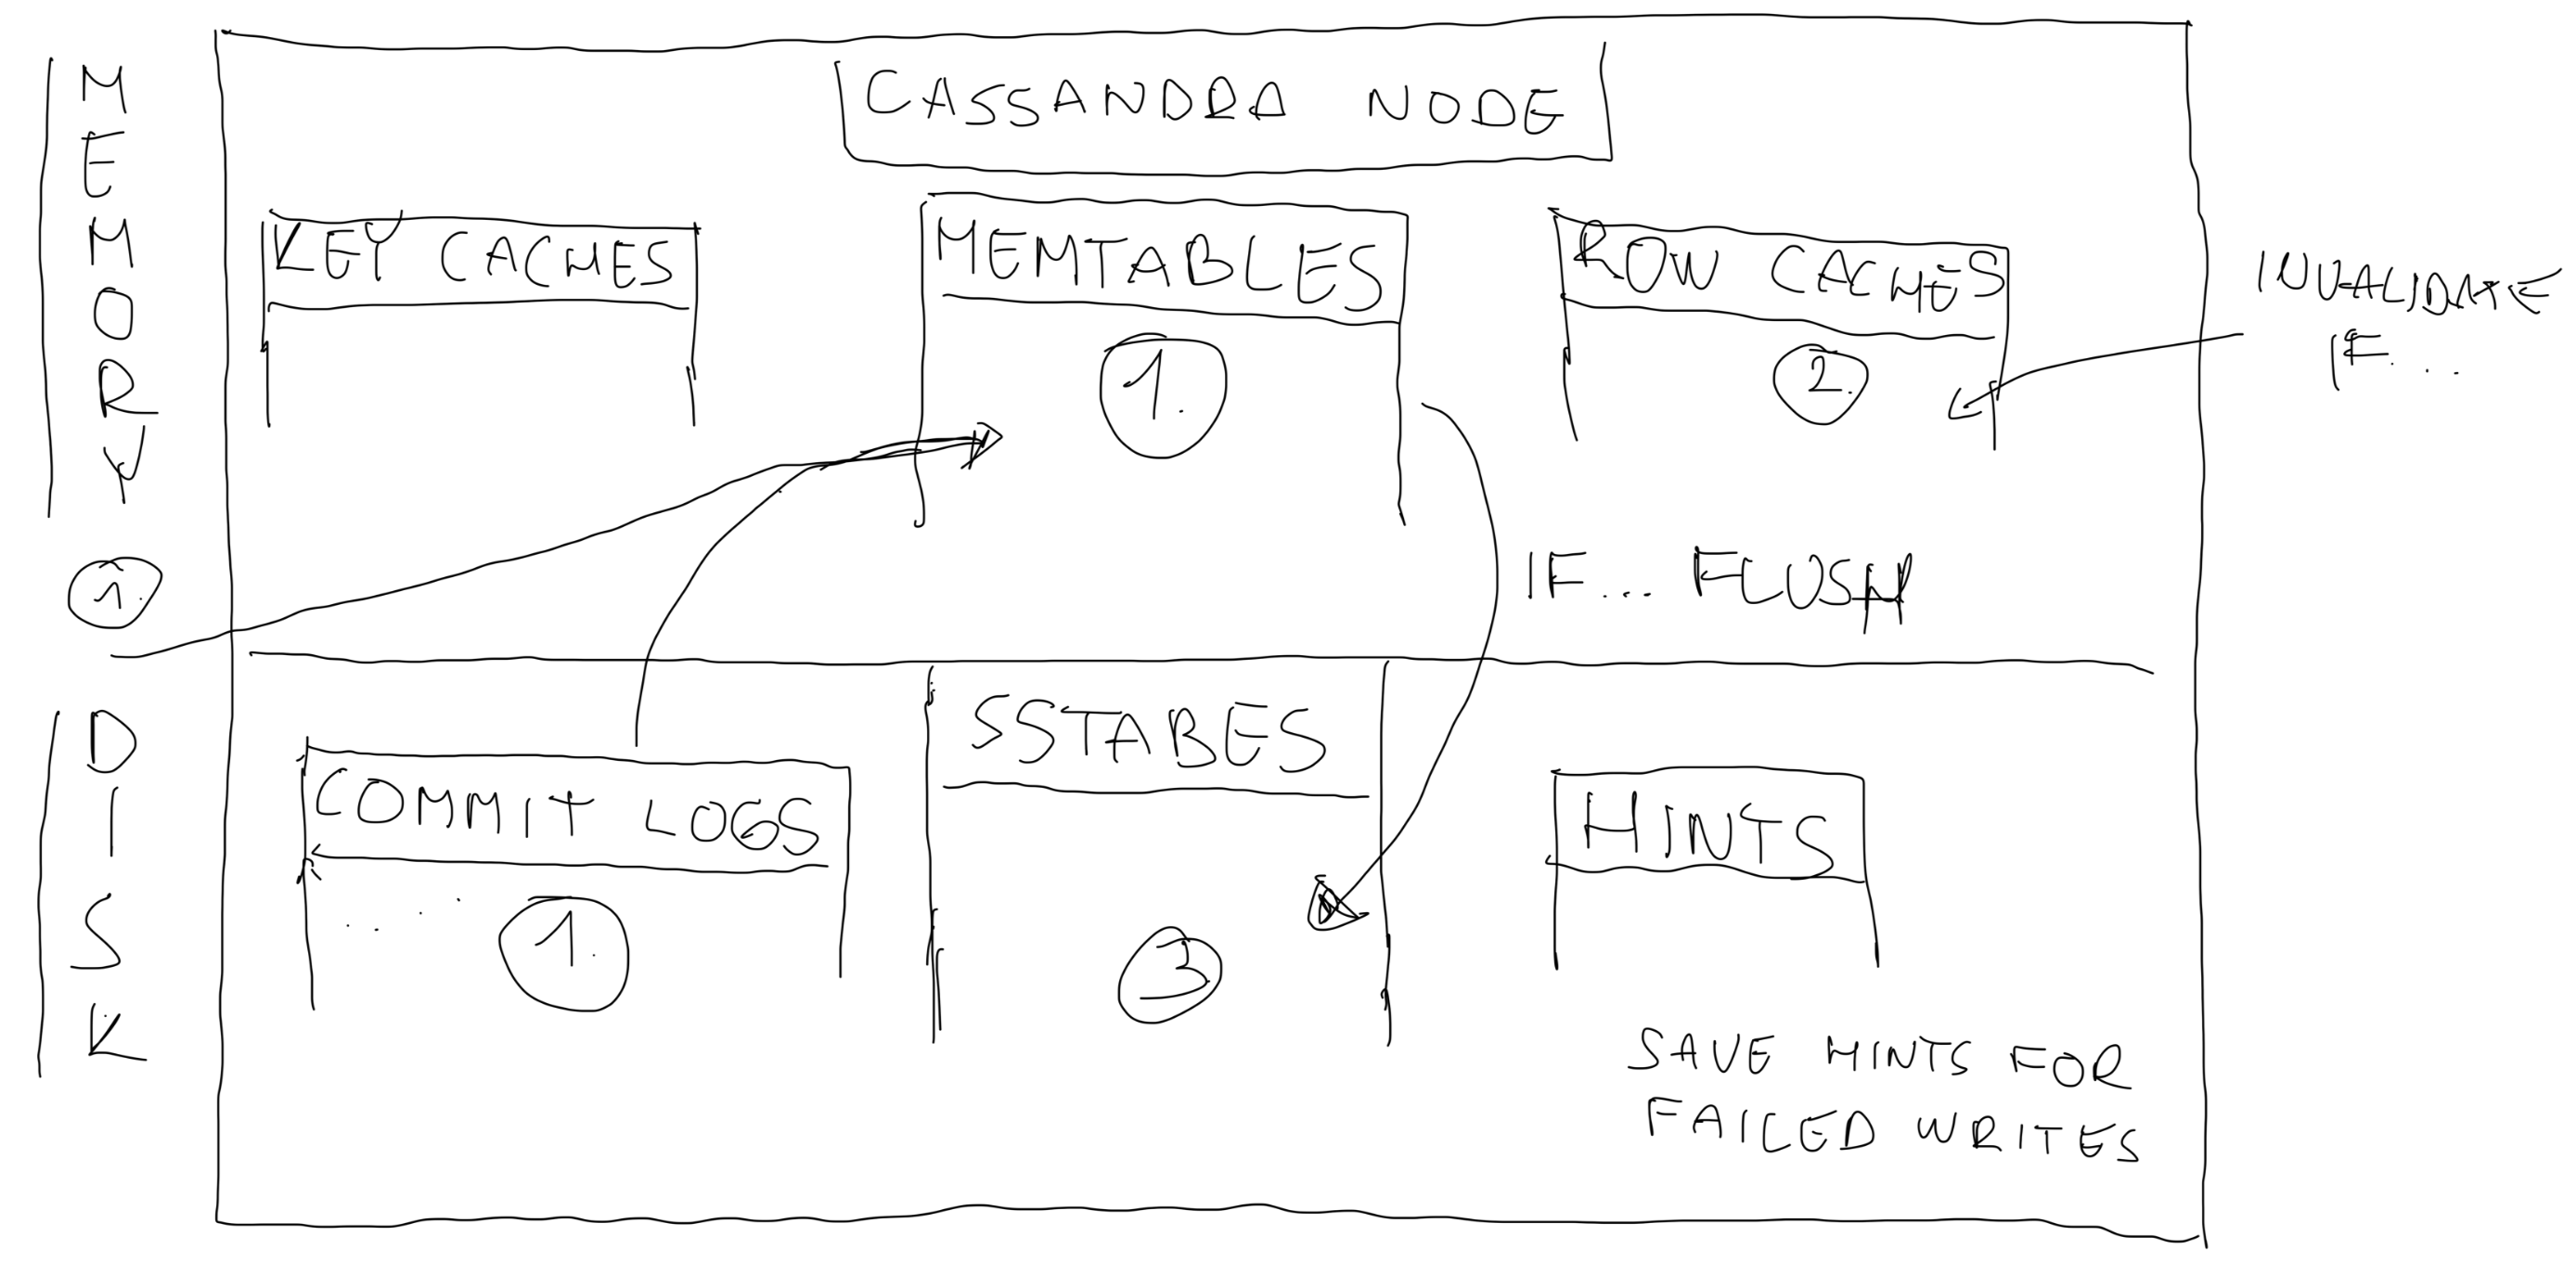 CASSANDRA NODE
MEMORY
KEY CACHES
MEMTABLES
ROW CACHES
1.
2.
INVALIDATE
IF...
1.
IF... FLUSH
DISK
COMMIT LOGS
SSTABES
HINTS
1.
3
SAVE HINTS FOR
FAILED WRITES